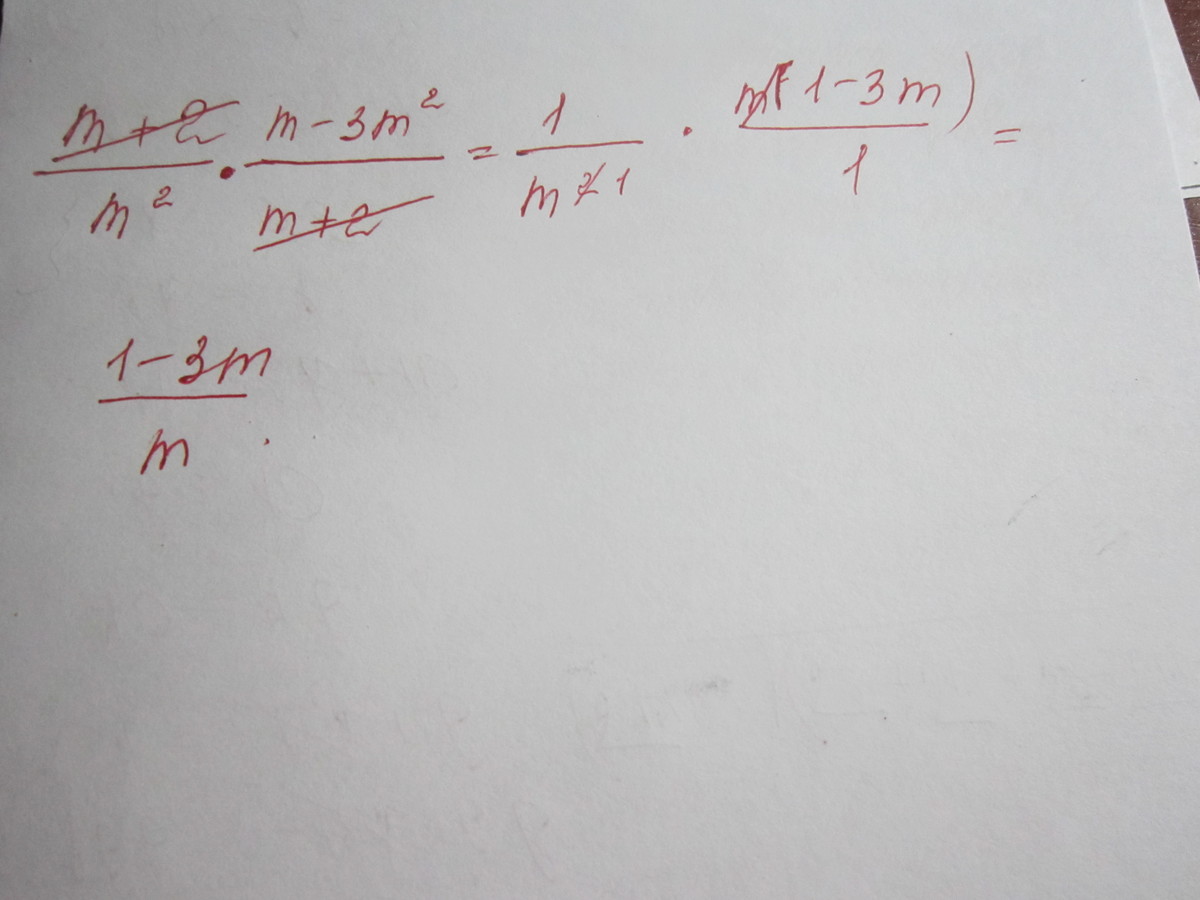 (m+2)/m² · (m-3m²)/(m+2) = 1/m²1 · m(1-3m)/1 =
(1-3m)/m.